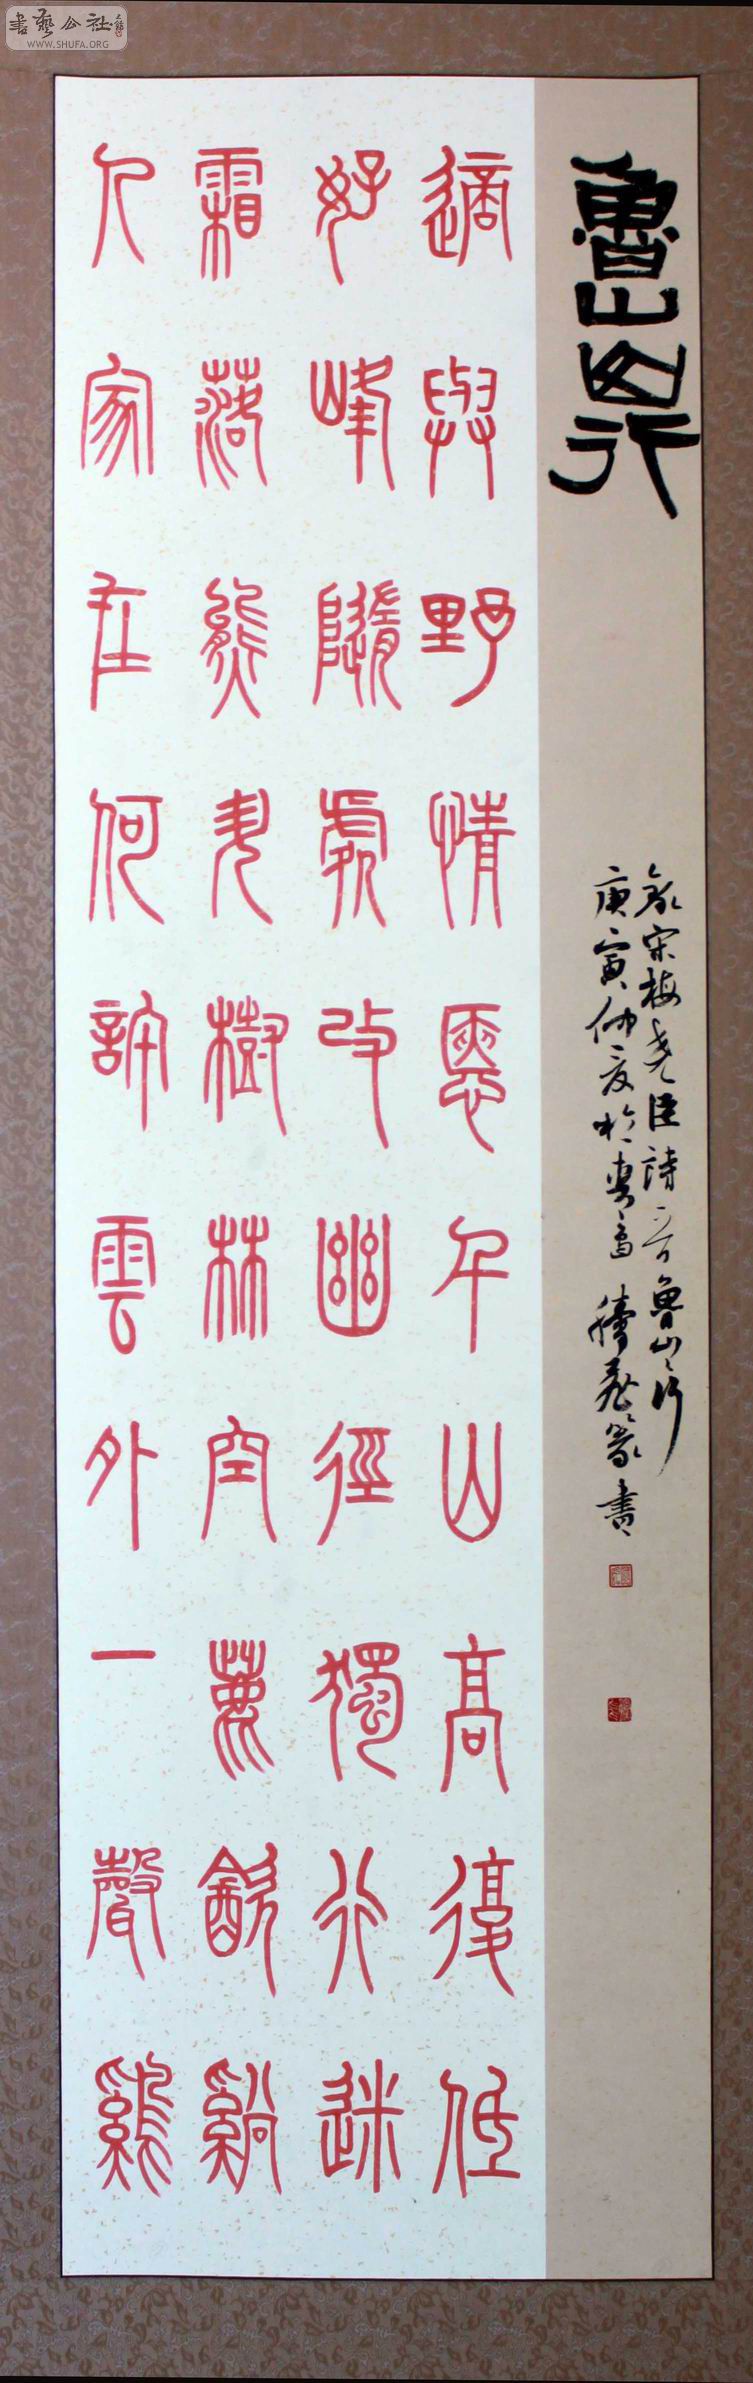 書藝公社
WWW.SHUFA.ORG
魯山山行
適與野情愜千山高復低
好峰隨處改幽徑獨行迷
霜落熊升樹林空麤飲谿
人家在何許雲外一聲鷄
錄宋梅堯臣詩一首魯山山行
庚寅仲夏於篆書